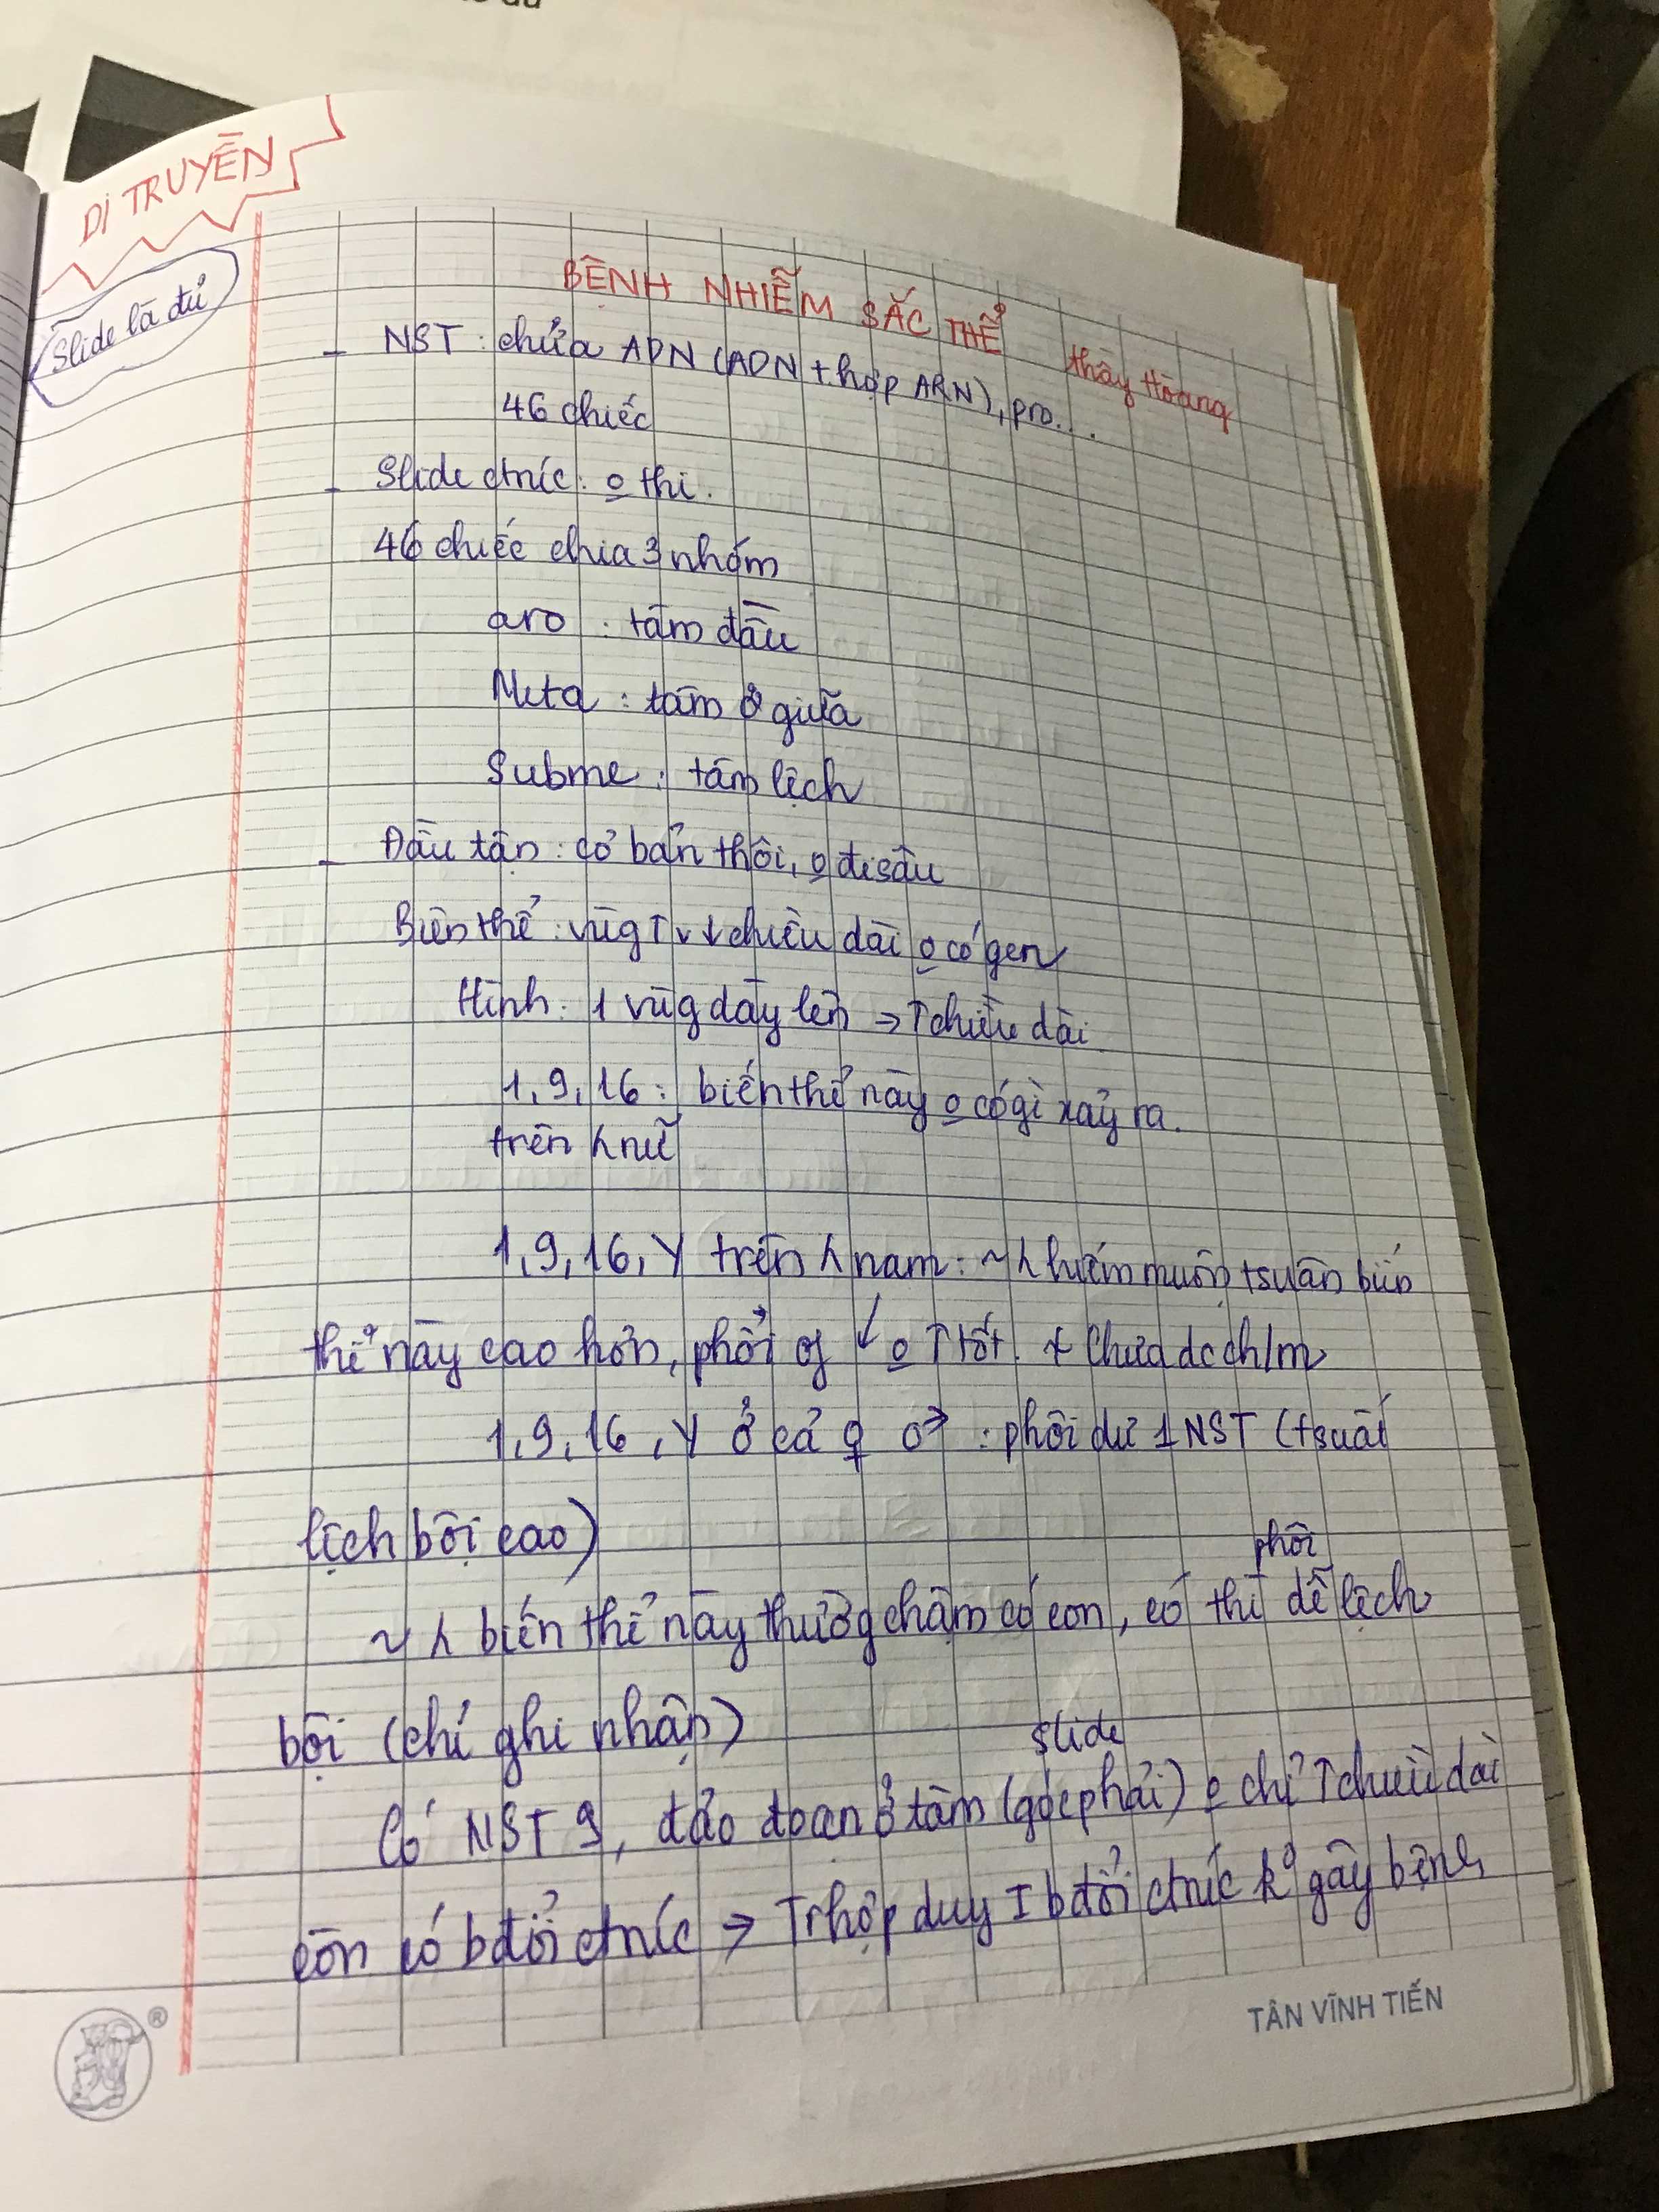 DI TRUYỀN
Slide là đủ
BỆNH NHIỄM SẮC THỂ
thầy Hoàng
- NST : chứa ADN (ADN + hợp ARN), pro...
46 chiếc
- Slide ctrúc : o thi.
46 chiếc chia 3 nhóm
acro : tâm đầu
Meta : tâm ở giữa
Subme : tâm lệch
- Đầu tận : cơ bản thôi, o đi sâu
Biến thể : vùg ↑ v ↓ chiều dài o có gen
Hình : 1 vùg dày lên → ↑ chiều dài
1, 9, 16 : biến thể này o có gì xảy ra.
trên λ nữ
1, 9, 16, Y trên λ nam : ~ λ hiếm muộn tsuân biến
thể này cao hơn, phôi ↓ o ↑ tốt. + Chưa dc ch/m
1, 9, 16, Y ở cả ♀ ♂ : phôi dư 1 NST (tsuất
lệch bội cao)
~ λ biến thể này thườg chậm có con, có thì phôi dễ lệch
bội (chỉ ghi nhận)
slide
Có NST 9, đảo đoạn ở tâm (góc phải) o chỉ ↑ chiều dài
còn có bđổi ctrúc → Trhợp duy I bđổi ctrúc k° gây bệnh
TÂN VĨNH TIẾN
®